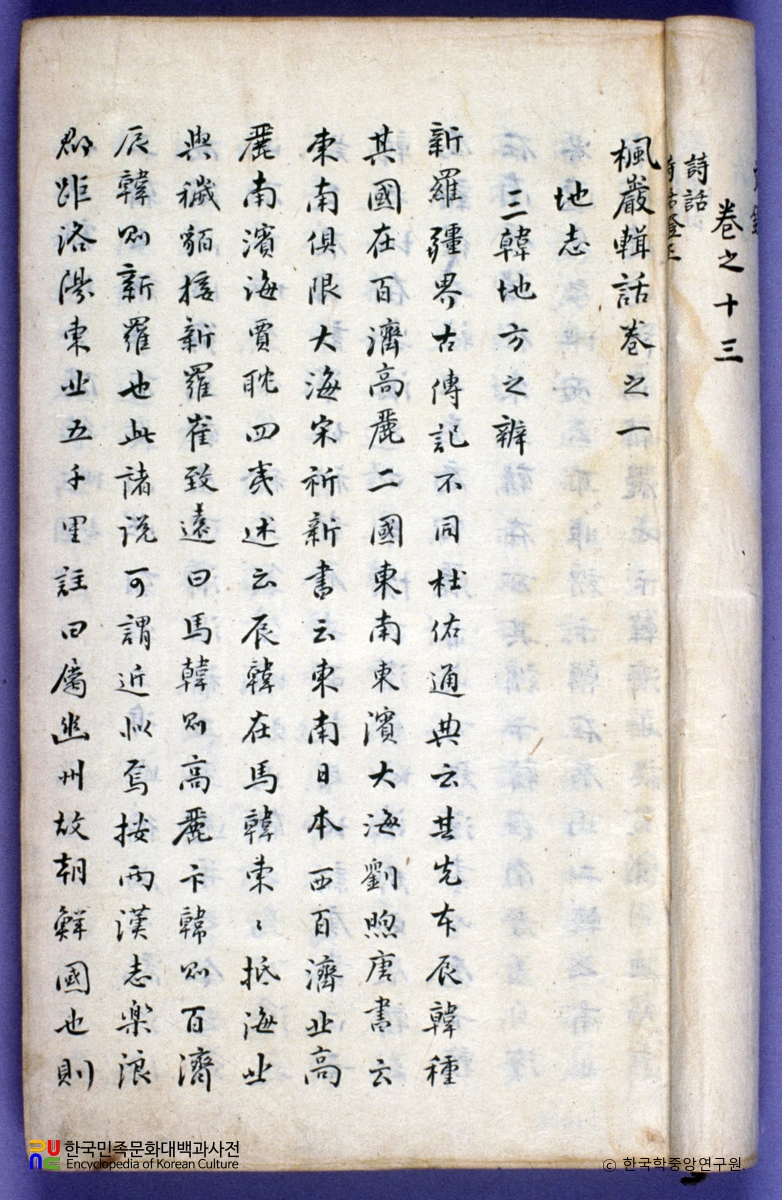 卷之十三
詩話
楓巖輯話卷之一
地志
三韓地方之辨
新羅疆界古傳記不同杜佑通典云其先本辰韓種
其國在百濟高麗二國東南東濱大海劉煦唐書云
東南俱限大海宋祈新書云東南日本西百濟北高
麗南濱海賈耽四夷述云辰韓在馬韓東〻抵海北
與穢貊接新羅崔致遠曰馬韓則高麗卞韓則百濟
辰韓則新羅也此諸說可謂近似焉按兩漢志樂浪
郡距洛陽東北五千里註曰屬幽州故朝鮮國也則
한국민족문화대백과사전
Encyclopedia of Korean Culture
© 한국학중앙연구원